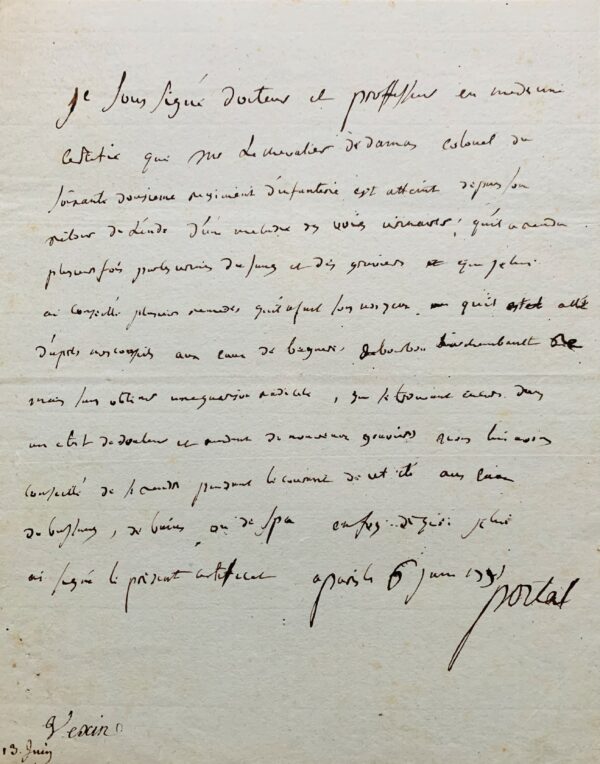 je sous signé docteur et professeur en medecine
certifie que Mr Le chevalier de damas colonel du
soixante douzieme regiment d'infanterie est atteint depuis son
retour de L'inde d'une maladie des voies urinaires, qu'il a rendu
plusieurs fois par les urines du sang et des graviers et que je lui
ai conseillé plusieurs remedes qu'il a fait sous mes yeux qu'il est allé
d'après mes conseils aux eaux de bagneres de bourbon Larchambault
mais sans obtenir une guerison radicale, que se trouvant encore dans
un etat de douleur et rendant de nouveaux graviers nous lui avons
conseillé de se rendre pendant le courant de cet été aux eaux
de bussang, de bains, ou de Spa en foy de quoi je lui
ai signé le présent certificat a paris le 6 juin 1791
portal
Vexin
13. Juin